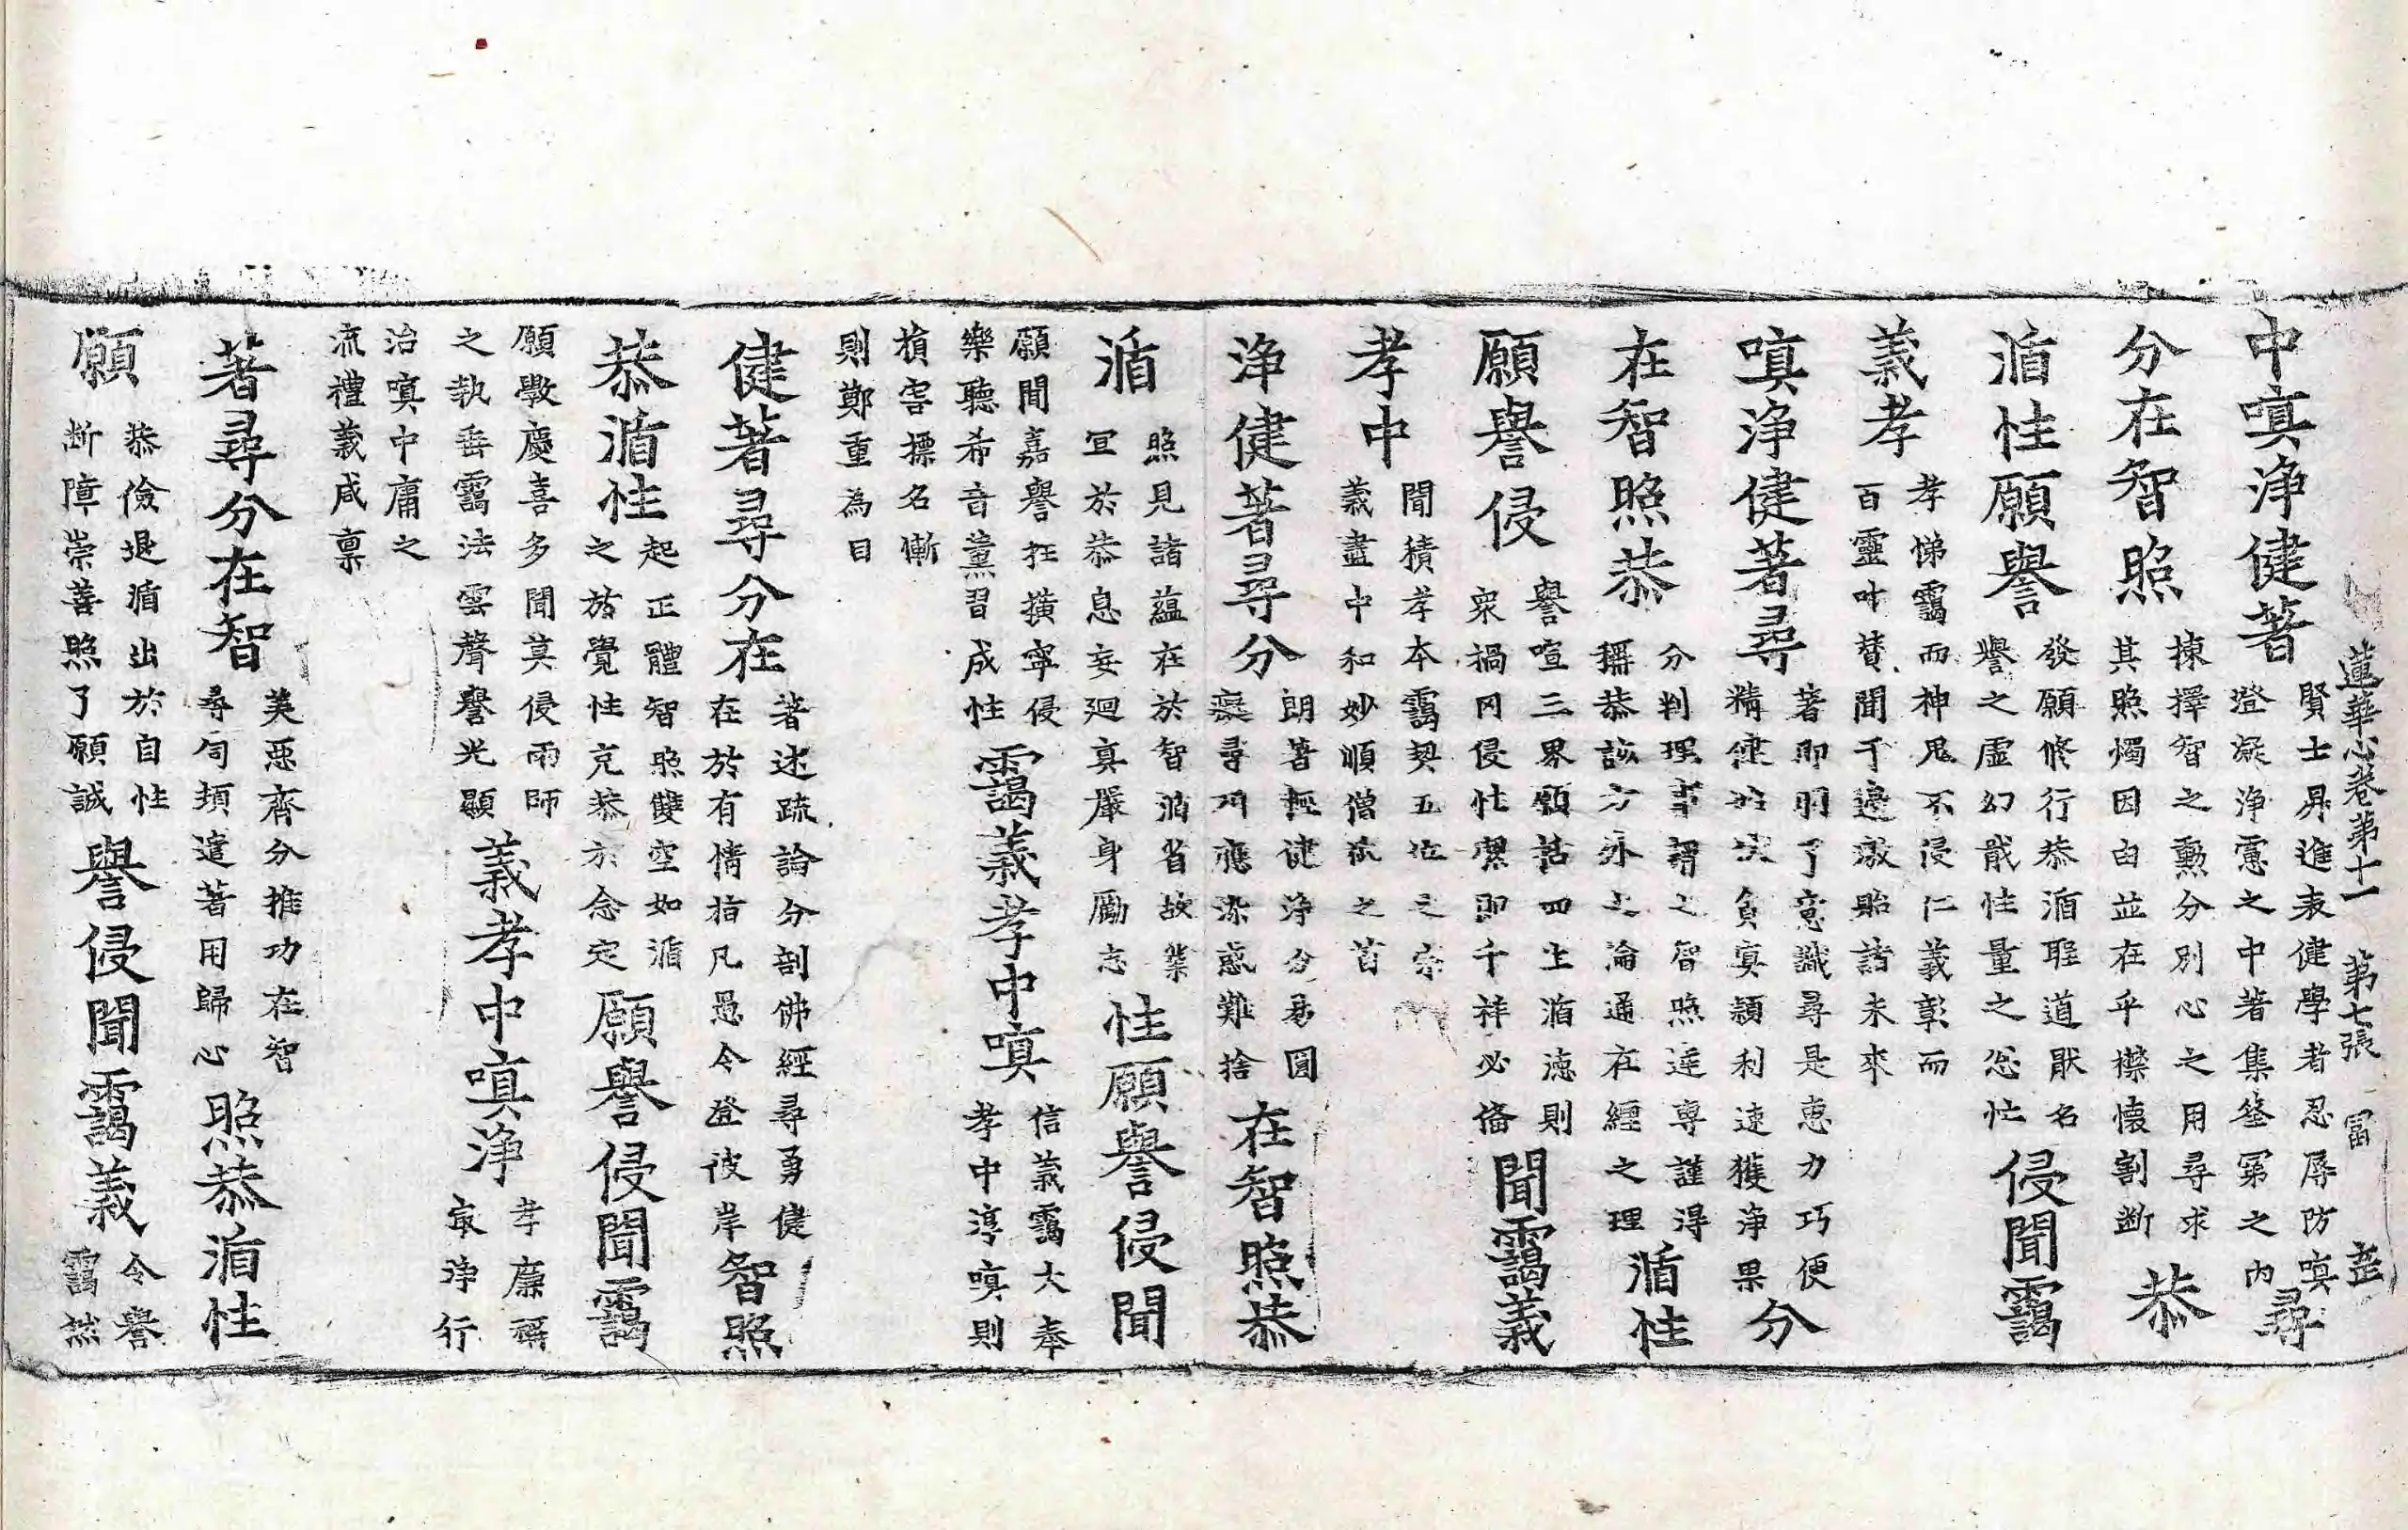 蓮華心卷第十一 第七張 冨
中嗔淨健著 賢士昇進表健學者忍辱防嗔
燈凝淨慮之中著集筌罤之內 尋
分在智照 揀擇智之勳分別心之用尋求
其照燭因由並在乎襟懷割断 恭
循性願譽 發願修行恭循聖道猒名
譽之虛幻戢性量之忩忙 侵聞靄
義孝 孝悌靄而神鬼不侵仁義彰而
百靈叶賛聞千邊激貽諸未來
嗔淨健著尋 著即明了意識尋是惠力巧便
精健如次負寘頴利速獲淨果 分
在智照恭 分判理事智之智照莚専謹得
稱恭該方外之論通在經之理 循性
願譽侵 譽喧三界願括四生循德則
衆禍冈侵性凞即千祥必俻 聞靄義
孝中 聞積孝本靄契五位之宗
義盡中和妙順僧祇之首
淨健著尋分 朗著極健淨分易圓
癡尋巧應染惑難捨 在智照恭
循 照見諸蘊在於智循省故業
宣於恭息妄廻真嚴身勵志 性願譽侵聞
願聞嘉譽狂撗寧侵
樂聽希音薰習成性 靄義孝中嗔 信義靄大奉
孝中淳嗔則
損害摽名慚
則鄭重為目
健著尋分在 著述疏論分剖佛經尋勇健
在於有情指凡愚令登彼岸 智照
恭循性 起正體智照雙空如循
之於覺性克恭於念定 願譽侵聞靄
願斅慶喜多聞莫侵雨師
之執垂靄法雲聲譽光顯 義孝中嗔淨 孝廉稱
㝡淨行
治嗔中庸之
流禮義咸禀
著尋分在智 美惡齊分推功在智
尋伺頻遣著用歸心 照恭循性
願 恭儉退循出於自性
断障崇善照了願誠 譽侵聞靄義 令譽
靄然